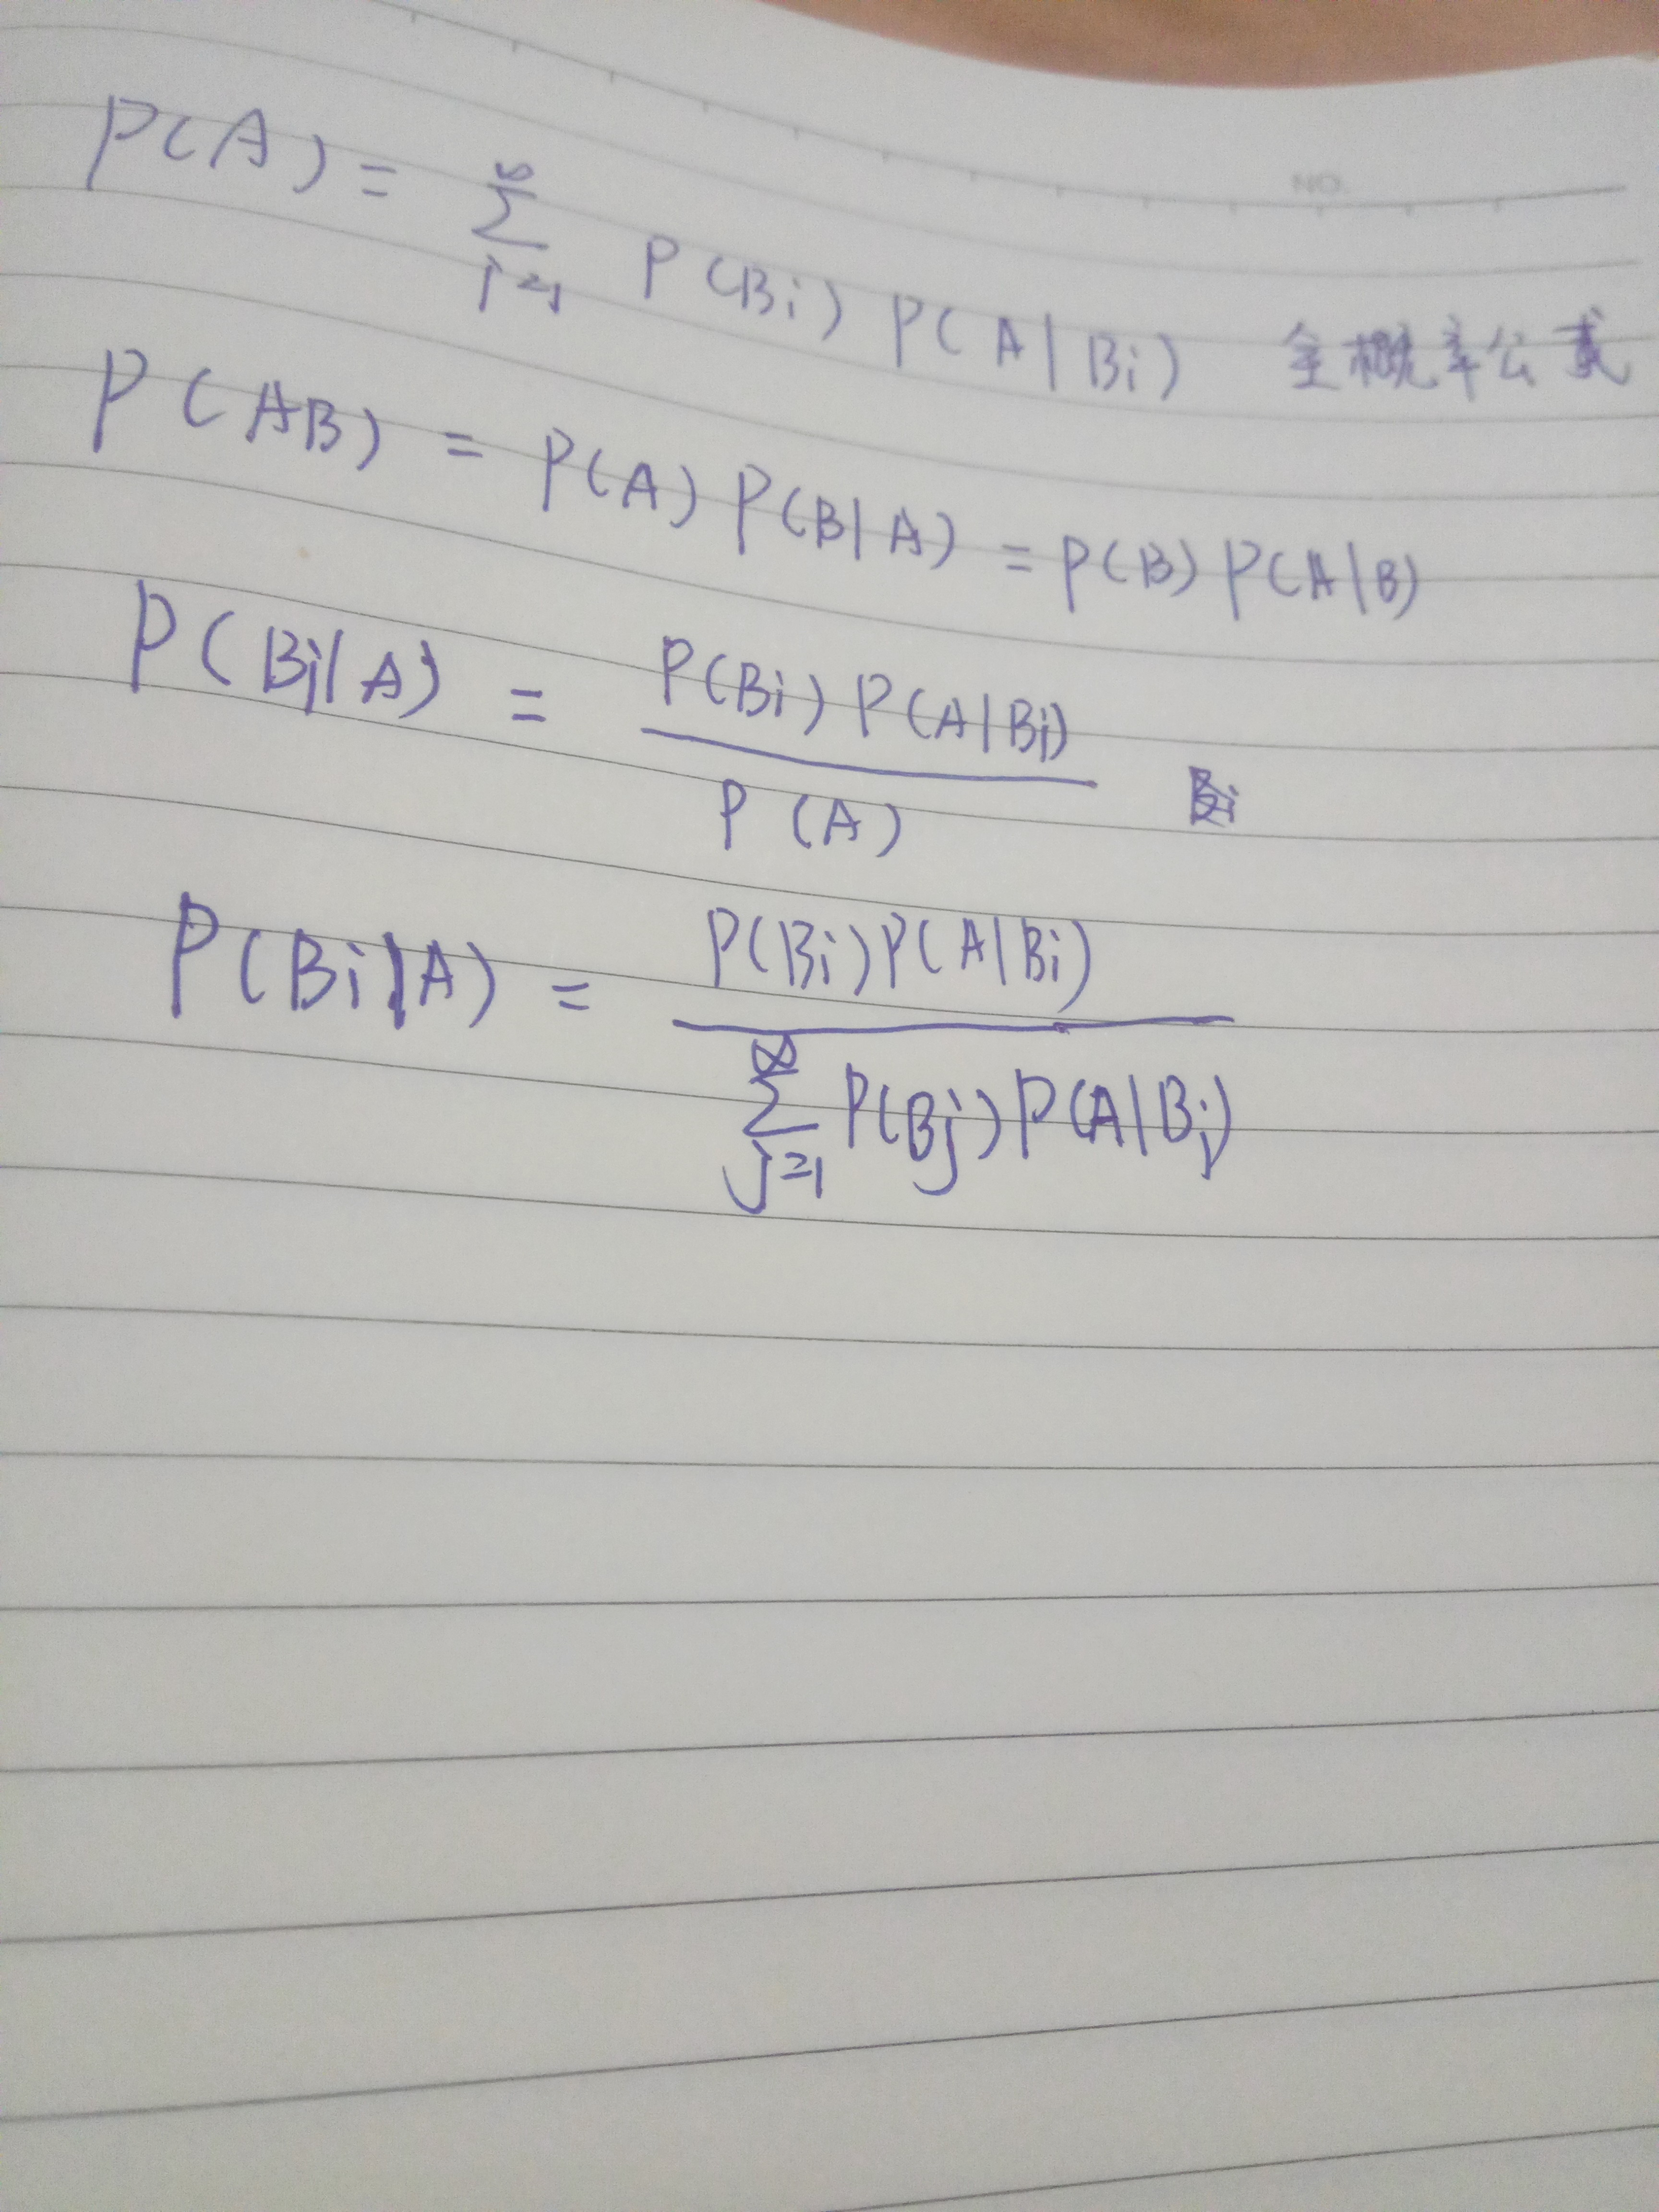 NO.
P(A) = ∑_{i=1}^{∞} P(Bi) P(A|Bi) 全概率公式
P(AB) = P(A) P(B|A) = P(B) P(A|B)
P(Bi|A) = \frac{P(Bi) P(A|Bi)}{P(A)}
P(Bi|A) = \frac{P(Bi)P(A|Bi)}{∑_{j=1}^{∞} P(Bj)P(A|Bj)}